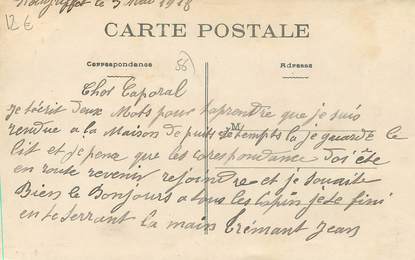 le 3 Mai 1918
12 €
CARTE POSTALE
Correspondance
56
Adresse
Cher Caporal
je técrit deux Mots pour taprendre que je suis
rendue a la Maison de puit de tempts la je guarde le
M
lit et je pense que les corespondance doi ête
en route revenir rejoindre et je souaite
Bien le Bonjours a tous les copin je te fini
en te serrant la main Trémant Jean